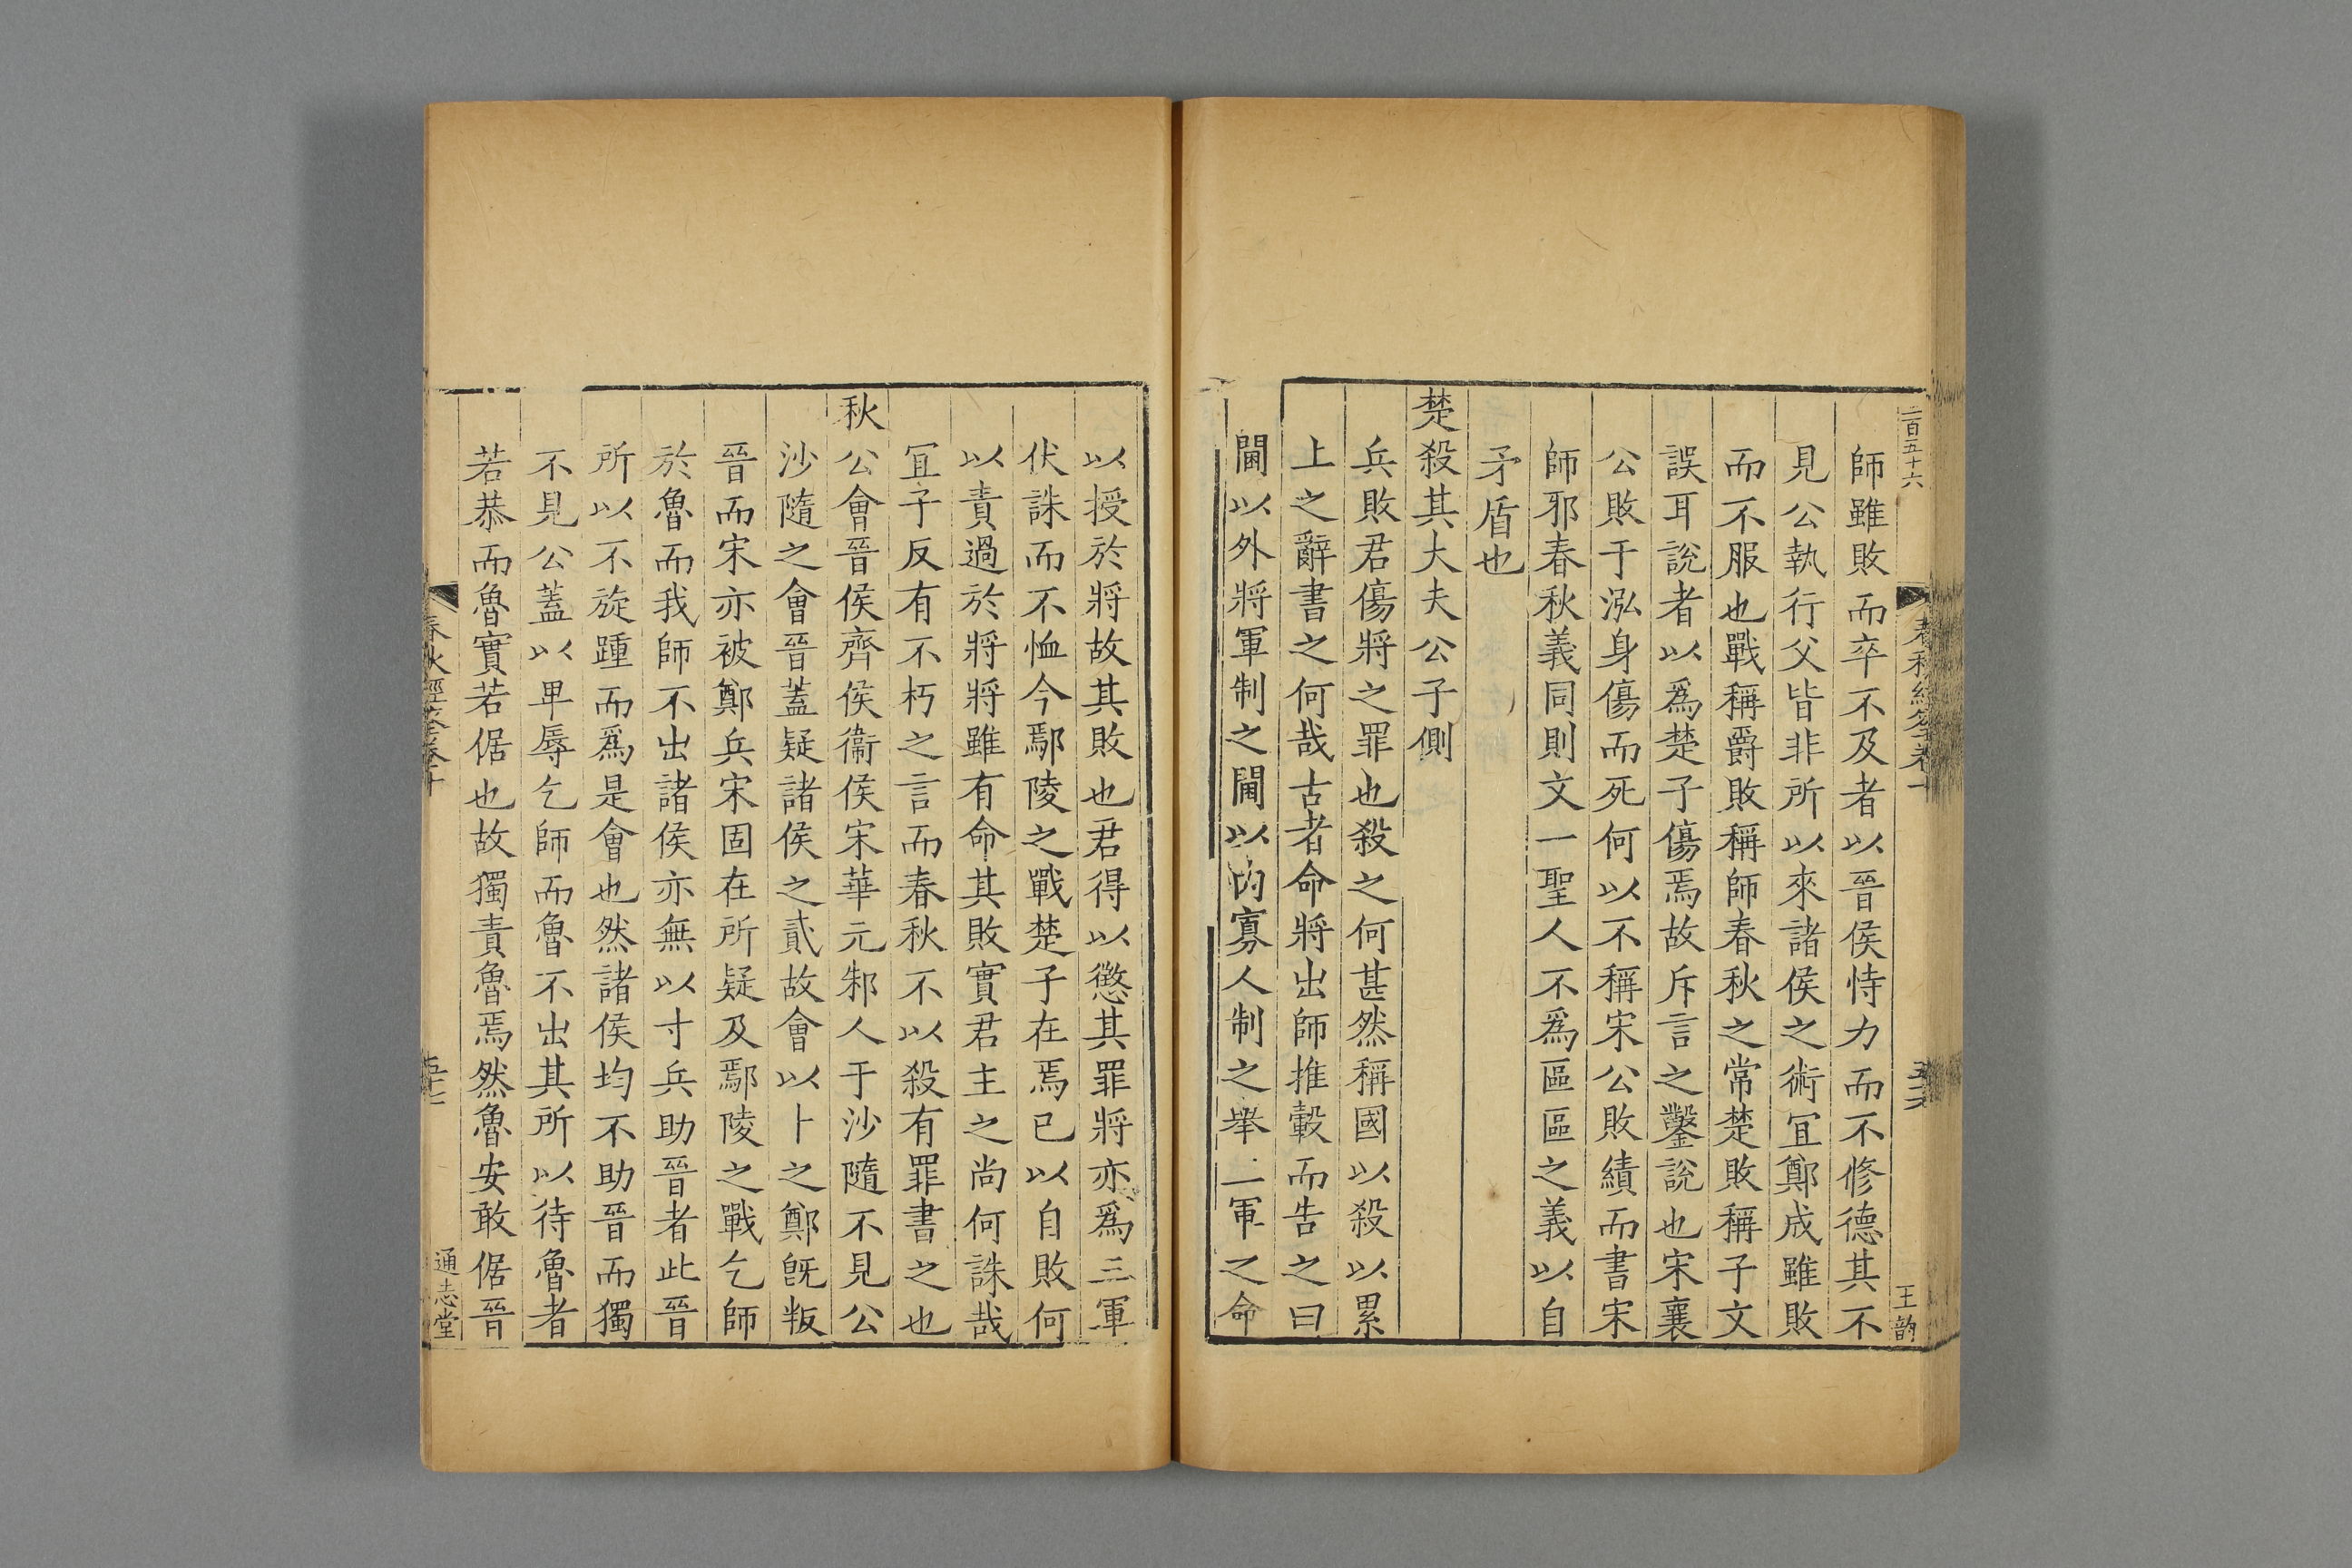 二百五十六
王
師雖敗而卒不及者以晉侯恃力而不修德其不
見公執行父皆非所以來諸侯之術宜鄭成雖敗
而不服也戰稱爵敗稱師春秋之常楚敗稱子文
誤耳説者以爲楚子傷焉故斥言之鑿説也宋襄
公敗于泓身傷而死何以不稱宋公敗績而書宋
師邪春秋義同則文一聖人不爲區區之義以自
矛盾也
楚殺其大夫公子側
兵敗君傷將之罪也殺之何甚然稱國以殺以累
上之辭書之何哉古者命將出師推轂而告之曰
閫以外將軍制之閫以内寡人制之舉一軍之命
以授於將故其敗也君得以懲其罪將亦爲三軍
伏誅而不恤今鄢陵之戰楚子在焉已以自敗何
以責過於將將雖有命其敗實君主之尚何誅哉
冝子反有不朽之言而春秋不以殺有罪書之也
秋公會晉侯齊侯衞侯宋華元邾人于沙隨不見公
沙隨之會晉蓋疑諸侯之貳故會以卜之鄭旣叛
晉而宋亦被鄭兵宋固在所疑及鄢陵之戰乞師
於魯而我師不出諸侯亦無以寸兵助晉者此晉
所以不旋踵而爲是會也然諸侯均不助晉而獨
不見公蓋以卑辱乞師而魯不出其所以待魯者
若恭而魯實若倨也故獨責魯焉然魯安敢倨晉
春秋經筌卷十
通志堂